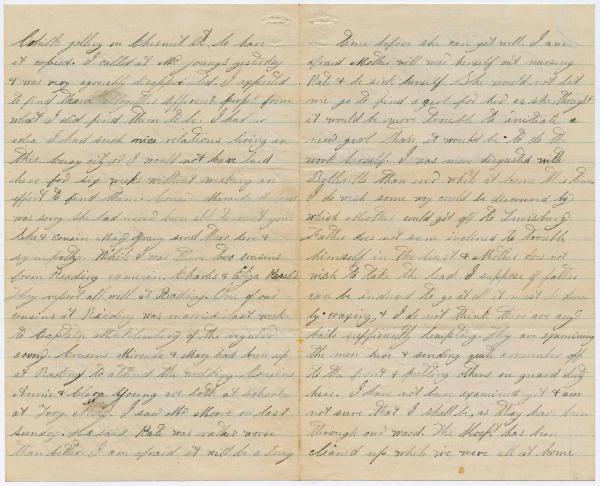 gallery on Chesnut St. to have
it copied. I called at Mr Young's yesterday
& was very agreeably disappointed. I expected
to find them altogether different from
what I did find them to be. I had no
idea I had such nice relations living in
this city or I would not have laid
here for six weeks without making an
effort to find them. Cousin
was sorry she had never been able to meet you.
She & cousin Mary Young send their love &
sympathy. While I was there two cousins
from Reading came in. Charles & Eliza
They report all well at Reading. One of our
cousins at Reading was married last week
to Captain of the regular
army. Cousins & Mary had been up
at Reading to attend the wedding. Cousins
Annie & Clara Young are both at school
at Troy I saw Mr Moore on last
Sunday. He said Kate was rather worse
than better. I am afraid it will be a long
time before she can get well. I am
afraid Mother will wear herself out nursing
Kate & be sick herself. She would not let
me go to find a girl for her as she thought
it would be more trouble to initiate a
new girl than it would be to do the
work herself. I was more disgusted with
Belleville than ever while at home this time
I do wish some way could be discovered by
which Mother could get off to Lewisburg
Father does not seem inclined to trouble
himself in the least & Mother does not
wish to take the lead I suppose if father
can be induced to go at all it must be done
by coaxing, & I do not think there are any
baits sufficiently tempting. They are examining
the men here & sending quite a number off
to the front & putting others on guard duty
here. I have not been examined yet & am
not sure that I shall be, as they have been
through our ward. The Hosp'l has been
cleaned up while we were all at home